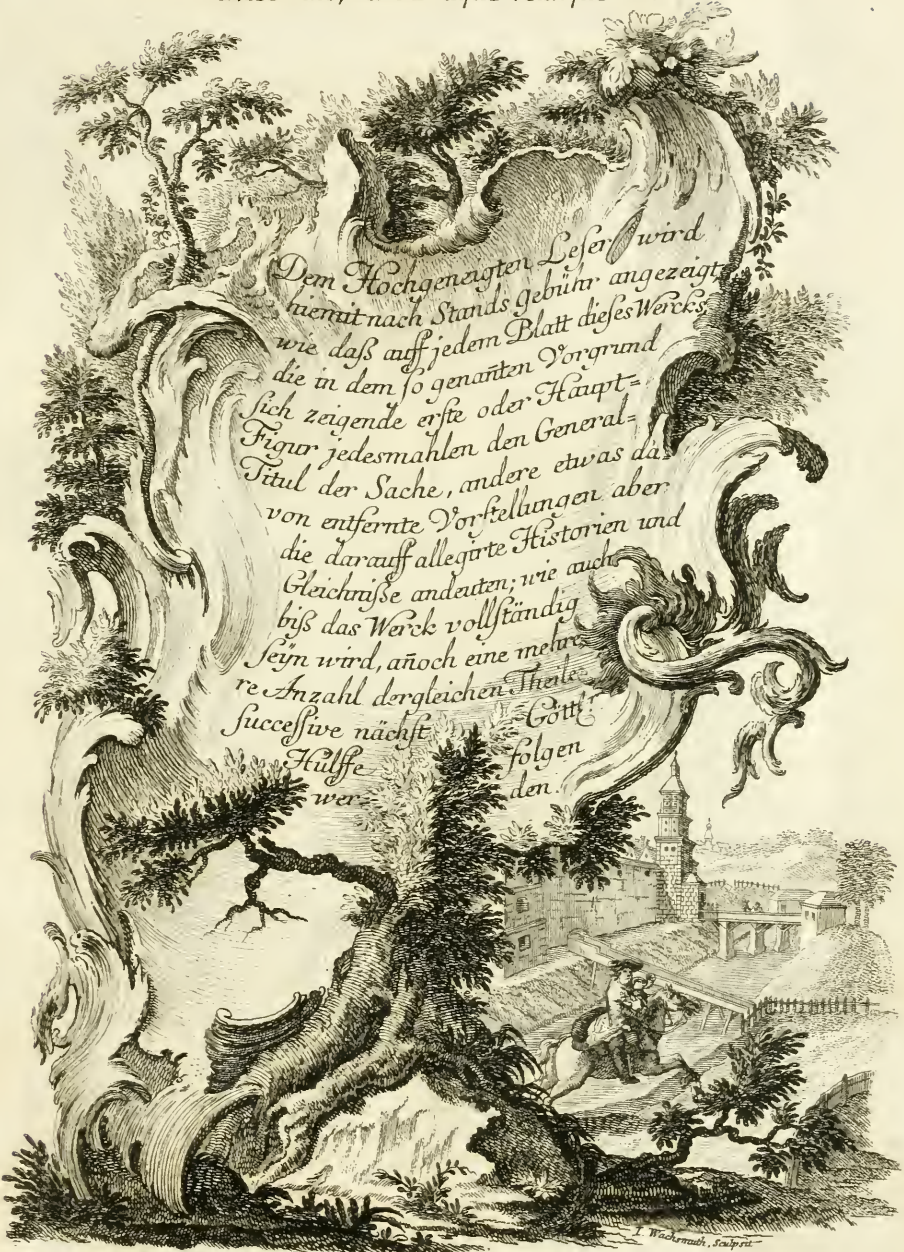 Dem Hochgeneigten Leser wird
hiemit nach Stands gebühr angezeigt,
wie daß auff jedem Blatt dieses Wercks,
die in dem so genañten Vorgrund
sich zeigende erste oder Haupt=
Figur jedesmahlen den General=
Titul der Sache, andere etwas da=
von entfernte Vorstellungen aber
die darauff allegirte Historien und
Gleichniße andeuten; wie auch
biß das Werck vollständig
seÿn wird, añoch eine mehre=
re Anzahl dergleichen Theile
successive nächst Göttl:
Hülffe folgen
wer= den.
I. Wachsmuth, Sculpsit